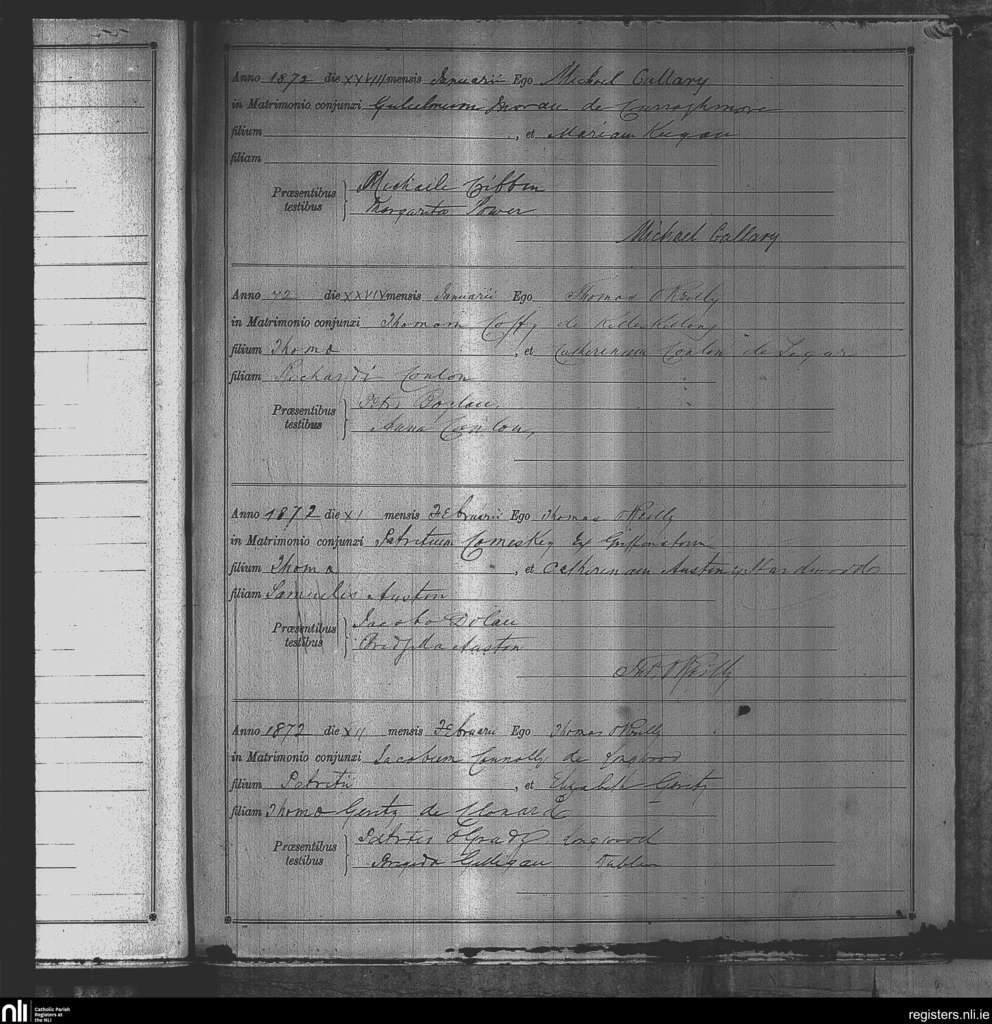 Anno 1872 die XXVIII mensis Januarii Ego Michael Callary
in Matrimonio conjunxi Gulielmum Moran de Curraghmore
filium , et Mariam Keegan
filiam
Præsentibus testibus Michaele Gibbon
Margarita Power
Michael Callary
Anno 72 die XXVIX mensis Januarii Ego Thomas O'Reilly
in Matrimonio conjunxi Thomam Coffy de
filium Thoma , et Catherinam Conlon de
filiam Richardi Conlon
Præsentibus testibus
Anna Conlon,
Anno 1872 die XI mensis Februarii Ego Thomas O'Reilly
in Matrimonio conjunxi Patritium Comeskey Ex Griffinstown
filium Thoma , et Catherinam Auston in Hardwood
filiam Samuelis Auston
Præsentibus testibus Jacobo Dolan
Auston
O'Reilly
Anno 1872 die XII mensis Februarii Ego Thomas O'Reilly
in Matrimonio conjunxi Jacobum Connolly de Longwood
filium Patritii , et Elizabeth Gentz
filiam Thoma Gentz de Clonard
Præsentibus testibus O'Grady Longwood
Brigida Gilligan
nli Catholic Parish Registers at the NLI
registers.nli.ie